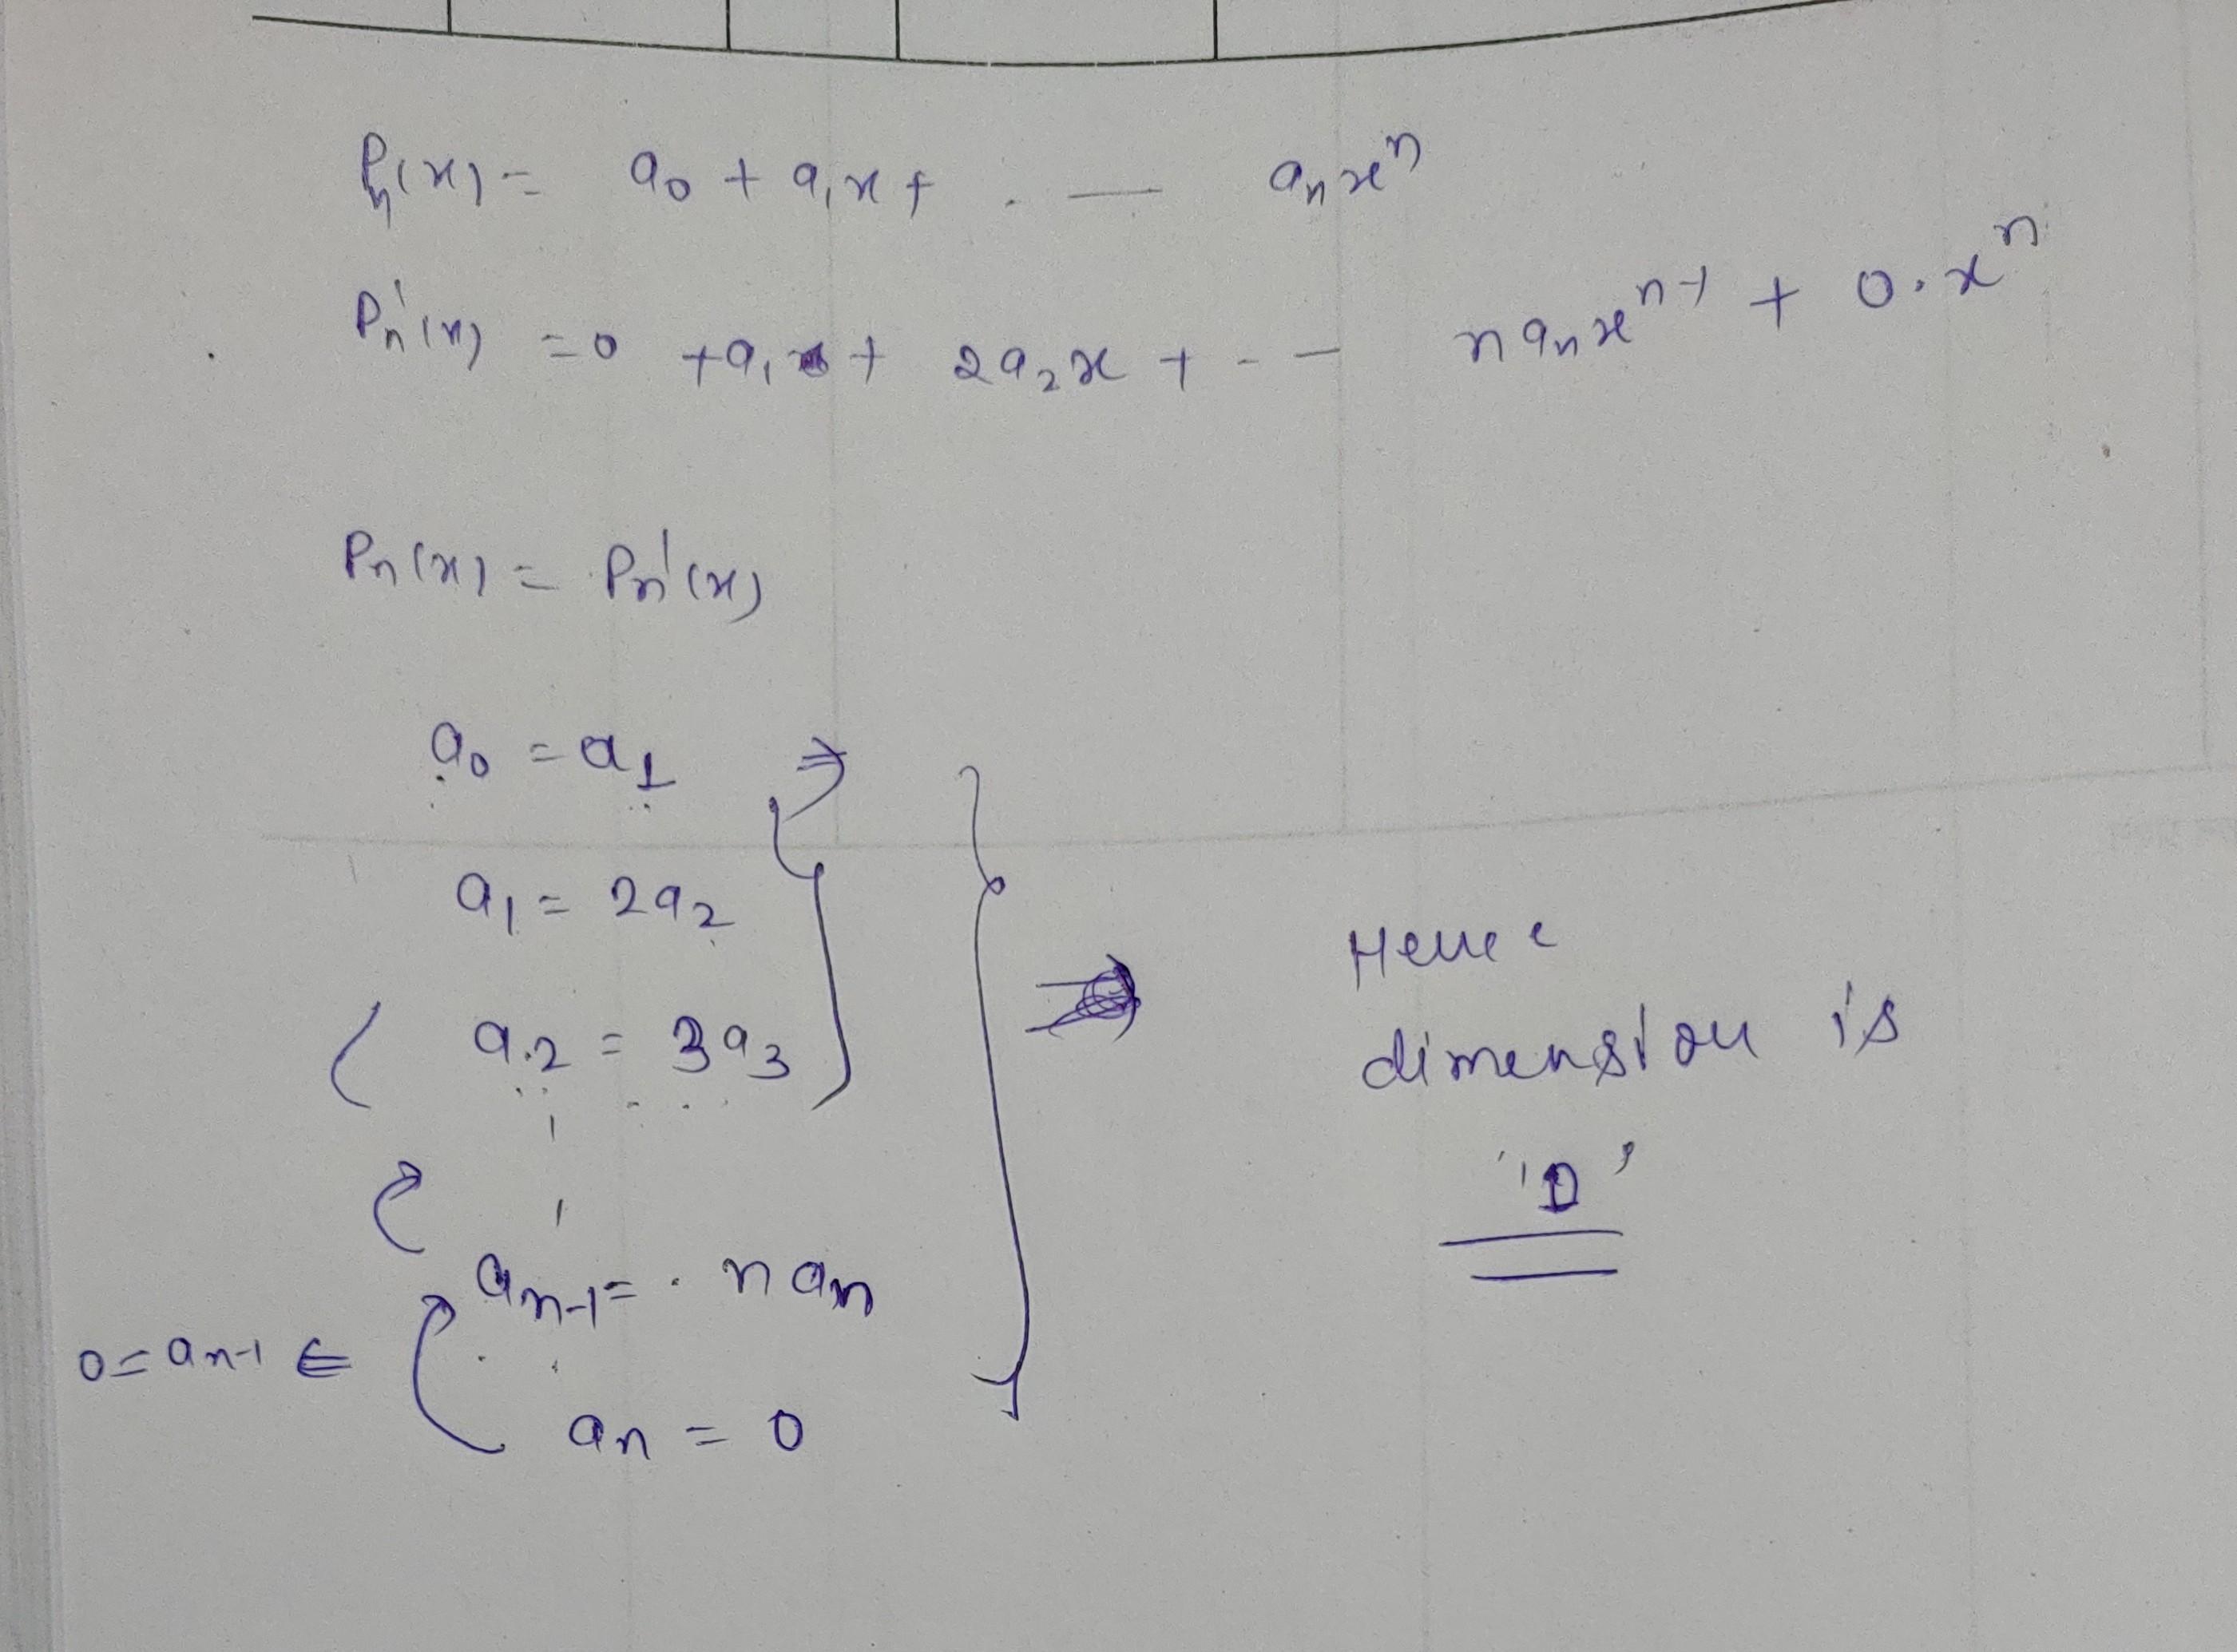 Pn(x) = a0 + a1x + . — anxⁿ
Pn'(x) = 0 + a1 + 2a2x + - - nanxⁿ⁻¹ + 0.xⁿ
Pn(x) = Pn'(x)
a0 = a1 ⇒
a1 = 2a2
a2 = 3a3
an-1 = nan
0 = an-1 ⇐
an = 0
⇒ Hence
dimension is
'0'